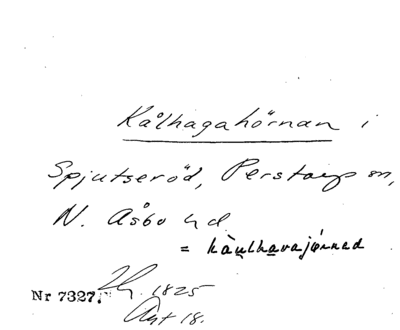 Kålhagahörnan i
Spjutseröd, Perstorp sn,
N. Åsbo hd.
= kàulhavajǿrned
Nr 7327. 1825
Akt 18.